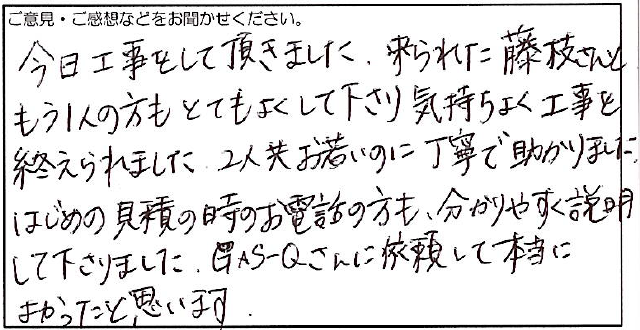 ご意見・ご感想などをお聞かせください。
今日工事をして頂きました、来られた藤枝さんと
もう1人の方もとてもよくして下さり気持ちよく工事を
終えられました、2人共お若いのに丁寧で助かりました、
はじめの見積の時のお電話の方も、分かりやすく説明
して下さりました、GAS-Qさんに依頼して本当に
よかったと思います。